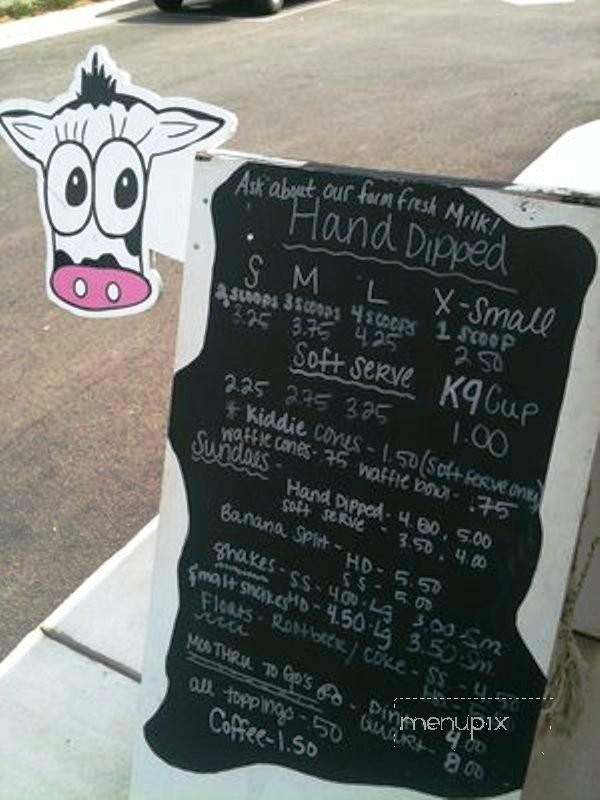 Ask about our farm fresh Milk!
Hand Dipped
S M L X-Small
2 scoops 3 scoops 4 scoops 1 scoop
3.25 3.75 4.25 2.50
Soft Serve K9 Cup
2.25 2.75 3.25 1.00
* Kiddie cones - 1.50 (soft serve only)
waffle cones - .75 waffle bowl - .75
Sundaes -
Hand Dipped - 4.00, 5.00
soft serve - 3.50, 4.00
Banana Split - HD - 5.50
SS - 5.00
Shakes - SS - 4.00 - Lg 3.00 - Sm
& malt shakes HD - 4.50 - Lg 3.50 - Sm
Floats - Rootbeer / Coke - SS - 4.50
Moo Thru To Go's - 4.00
all toppings - .50 Quart - 8.00
Coffee - 1.50
menupix